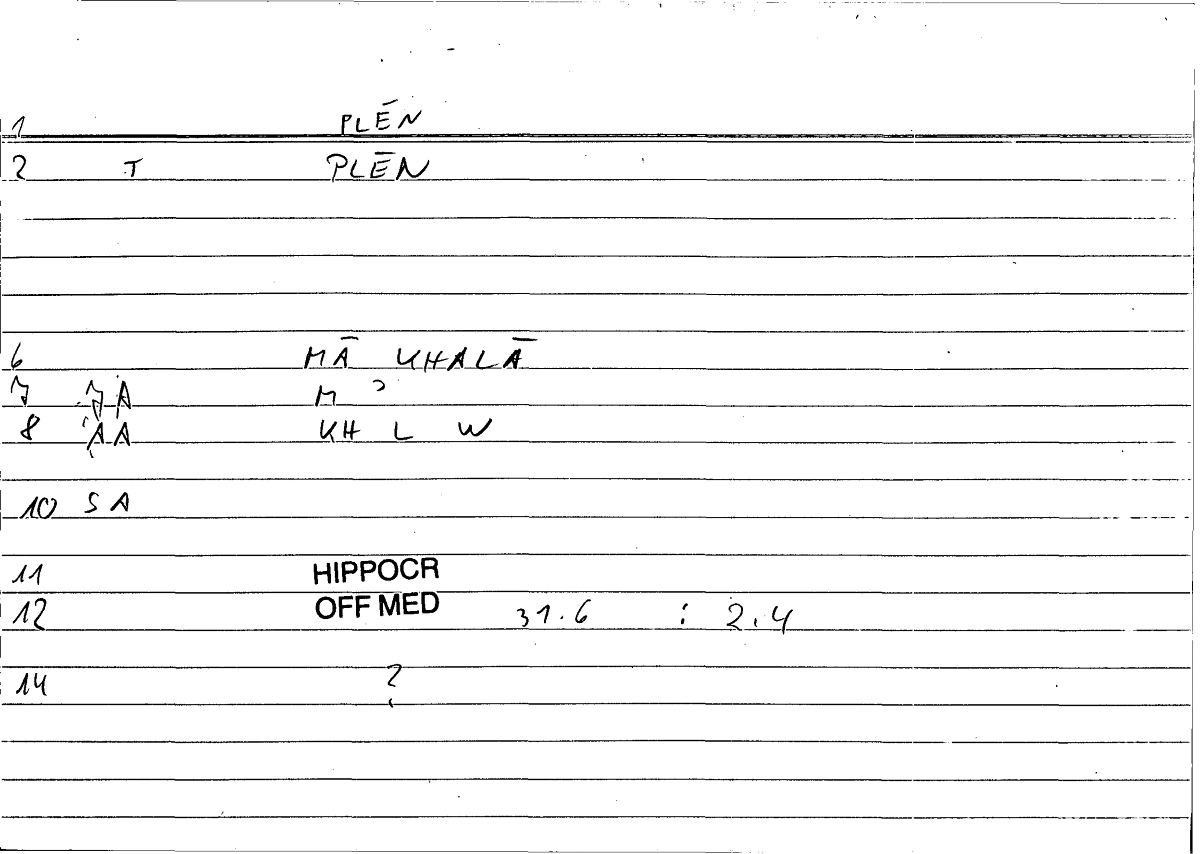 1 PLĒN
2 T PLĒN
6 MĀ KHALĀ
7 JA M ʾ
8 ĀA KH L W
10 SA
11 HIPPOCR
12 OFF MED 31.6 : 2.4
14 ?